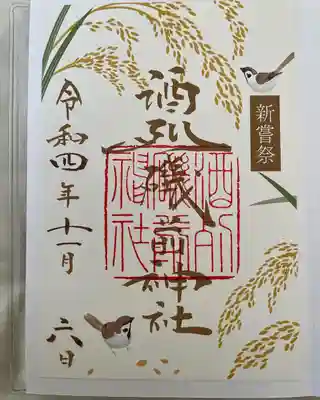 新嘗祭
酒列磯前神社
酒列
磯前
神社
令和四年十一月
六日